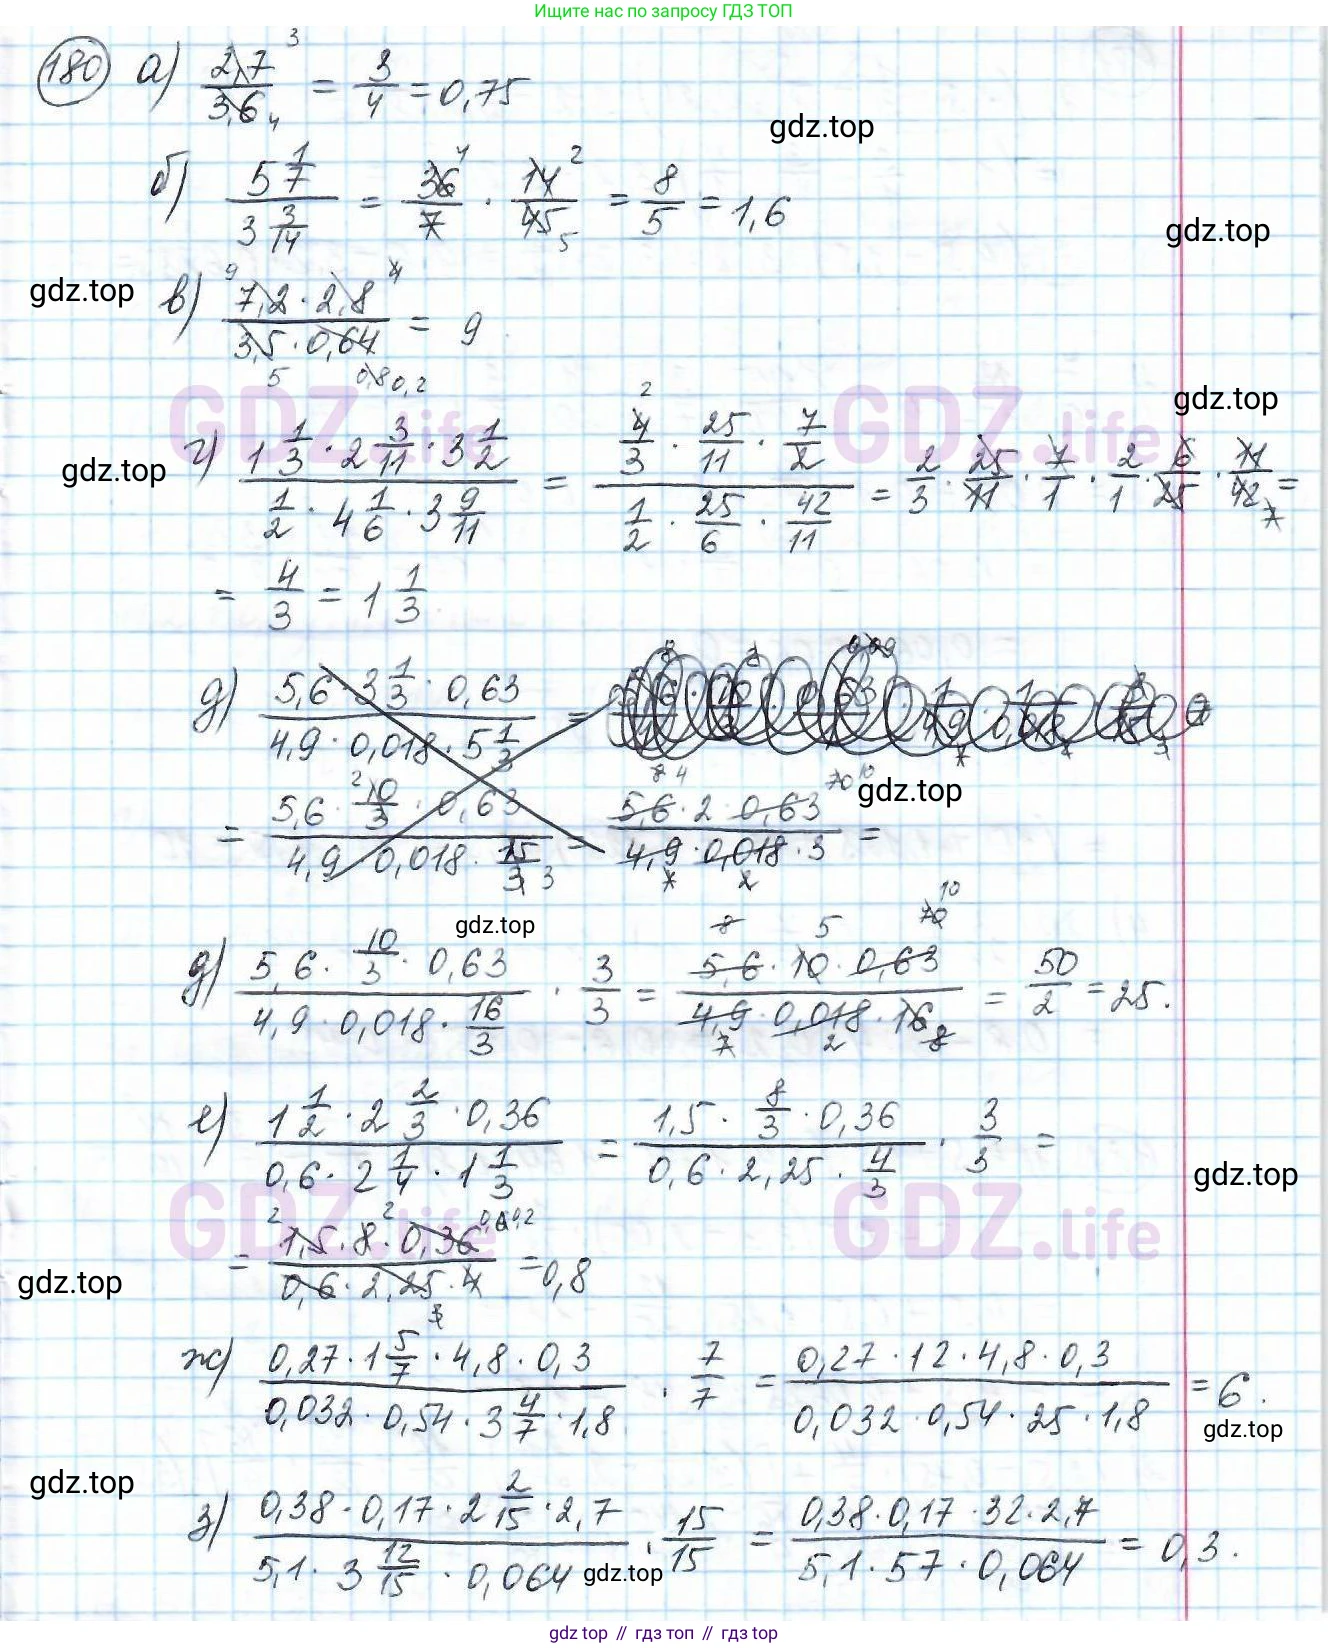 Ищите нас по запросу ГДЗ ТОП
180 а) 2,7/3,6 = 3/4 = 0,75
3
4
gdz.top
б) 5 1/7 / 3 3/14 = 36/7 · 14/45 = 8/5 = 1,6
4 2
5
gdz.top
gdz.top
в) 7,2 · 2,8 / 3,5 · 0,64 = 9
9 4
5 0,8 0,2
GDZ.life GDZ.life
gdz.top
gdz.top
г) 1 1/3 · 2 3/11 · 3 1/2 / 1/2 · 4 1/6 · 3 9/11 = 4/3 · 25/11 · 7/2 / 1/2 · 25/6 · 42/11 = 2/3 · 25/11 · 7/1 · 2/1 · 6/25 · 11/42 =
2
7
= 4/3 = 1 1/3
д) 5,6 · 3 1/3 · 0,63 / 4,9 · 0,018 · 5 1/3 =
= 5,6 · 10/3 · 0,63 / 4,9 · 0,018 · 15/3 = 5,6 · 2 · 0,63 / 4,9 · 0,018 · 3 =
2 3 8 4 70 10
7 2
gdz.top
gdz.top
д) 5,6 · 10/3 · 0,63 / 4,9 · 0,018 · 16/3 · 3/3 = 5,6 · 10 · 0,63 / 4,9 · 0,018 · 16 = 50/2 = 25.
8 5 70 10
7 2 8
е) 1 1/2 · 2 2/3 · 0,36 / 0,6 · 2 1/4 · 1 1/3 = 1,5 · 8/3 · 0,36 / 0,6 · 2,25 · 4/3 · 3/3 =
gdz.top
GDZ.life GDZ.life
= 1,5 · 8 · 0,36 / 0,6 · 2,25 · 4 = 0,8
2 2 0,2
gdz.top
ж) 0,27 · 1 5/7 · 4,8 · 0,3 / 0,032 · 0,54 · 3 4/7 · 1,8 · 7/7 = 0,27 · 12 · 4,8 · 0,3 / 0,032 · 0,54 · 25 · 1,8 = 6.
gdz.top
gdz.top
з) 0,38 · 0,17 · 2 2/15 · 2,7 / 5,1 · 3 12/15 · 0,064 · 15/15 = 0,38 · 0,17 · 32 · 2,7 / 5,1 · 57 · 0,064 = 0,3.
gdz.top
gdz top // гдз топ // гдз top